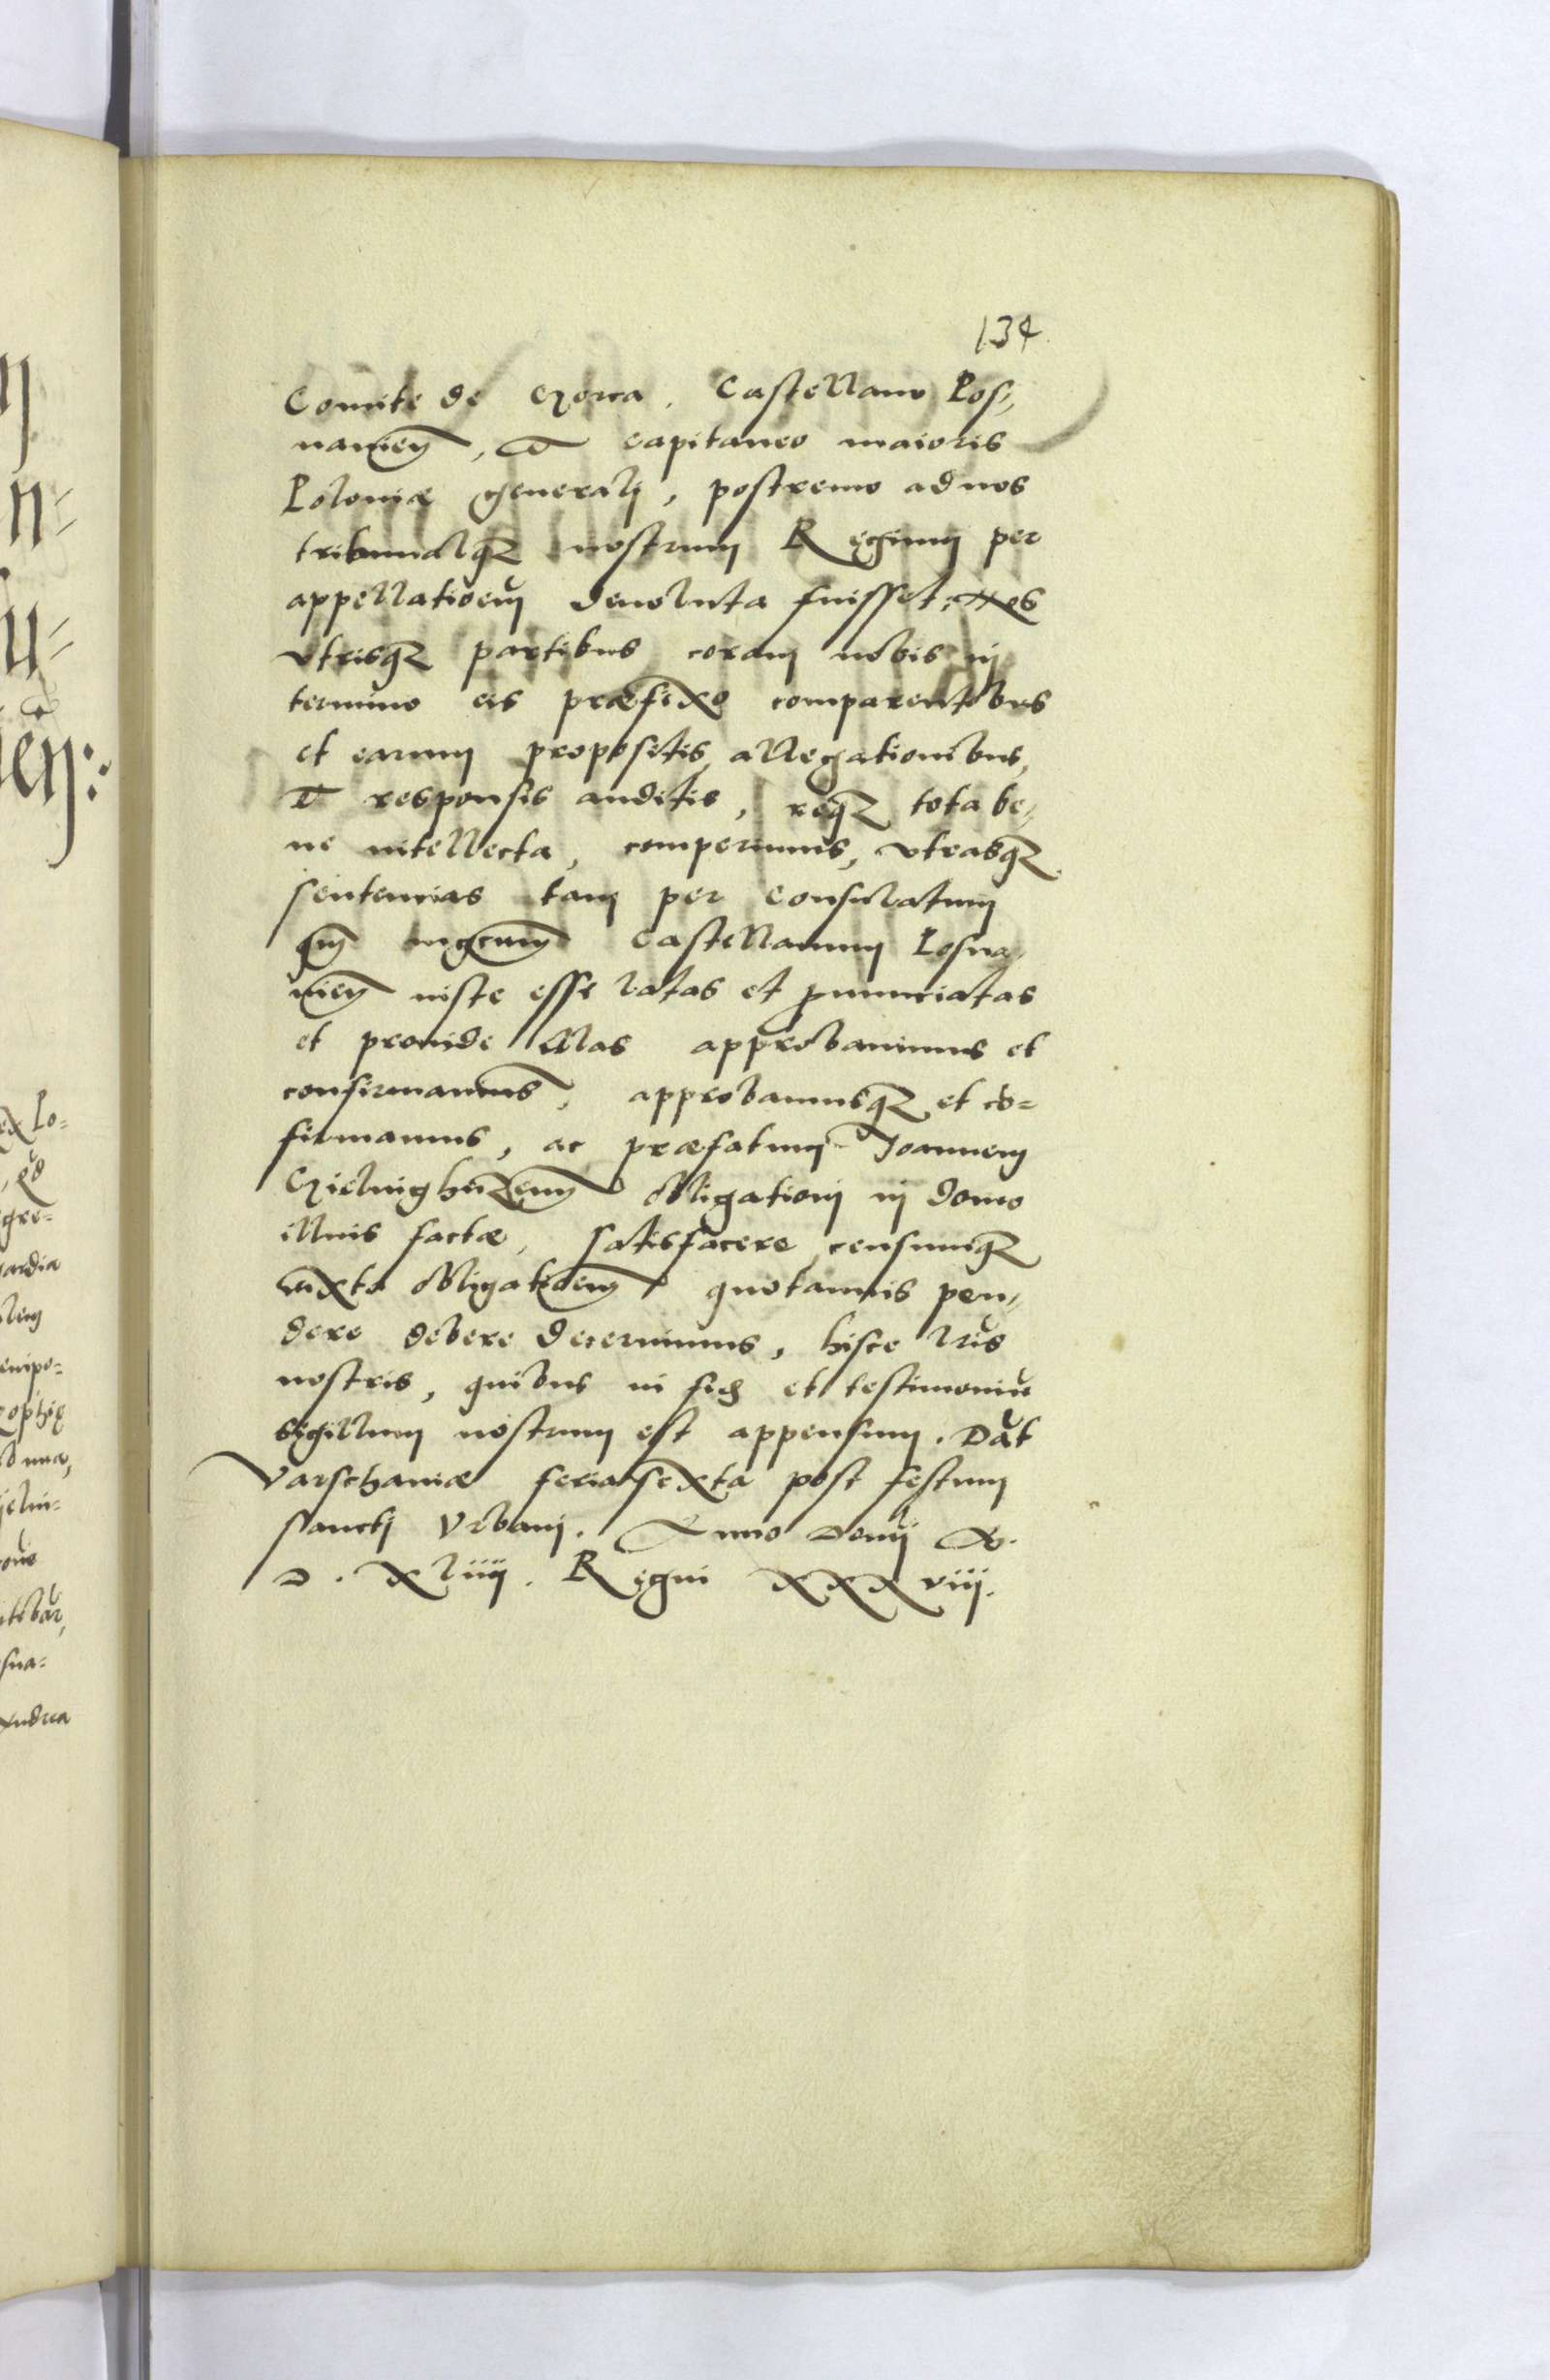 134
Comite de Gorca, Castellano Pos,
nanień, et capitaneo maioris
Poloniæ generalj, postremo ad nos
tribunalqꝫ nostrum Regium per
appellatioem deuoluta fuisset; Nos
vtrisqꝫ partibus coram nobis in
termino eis præfixo comparentibus
et earum propositis, allegationibus,
et responsis auditis, reqꝫ tota be,
ne intellecta, comperimus, vtrasqꝫ
sentencias tam per Consulatum
qm̃ mgcum̃ Castellanum Posna,
nień iuste esse latas et ꝓnunciatas
et proinde illas approbauimus et
confirmauimus, approbamusqꝫ et cō=
firmamus, ac præfatum Joannem
obligationj in domo
illius factæ, satisfacere, censumqꝫ
iuxta obligatioem quotannis pen,
dere debere decernimus, hisce lrīs
nostris, quibus in fidē et testimoniū
sigillum nostrum est appensum. Dat̄
Varschauiæ feria sexta post festum
sanctj Vrbanj. Anno Domj M.
D. XLiiij. Regni XXXviij.
ex Po=
gre=
ardia
empo=
ophię
ielin=
sna=
Andrea